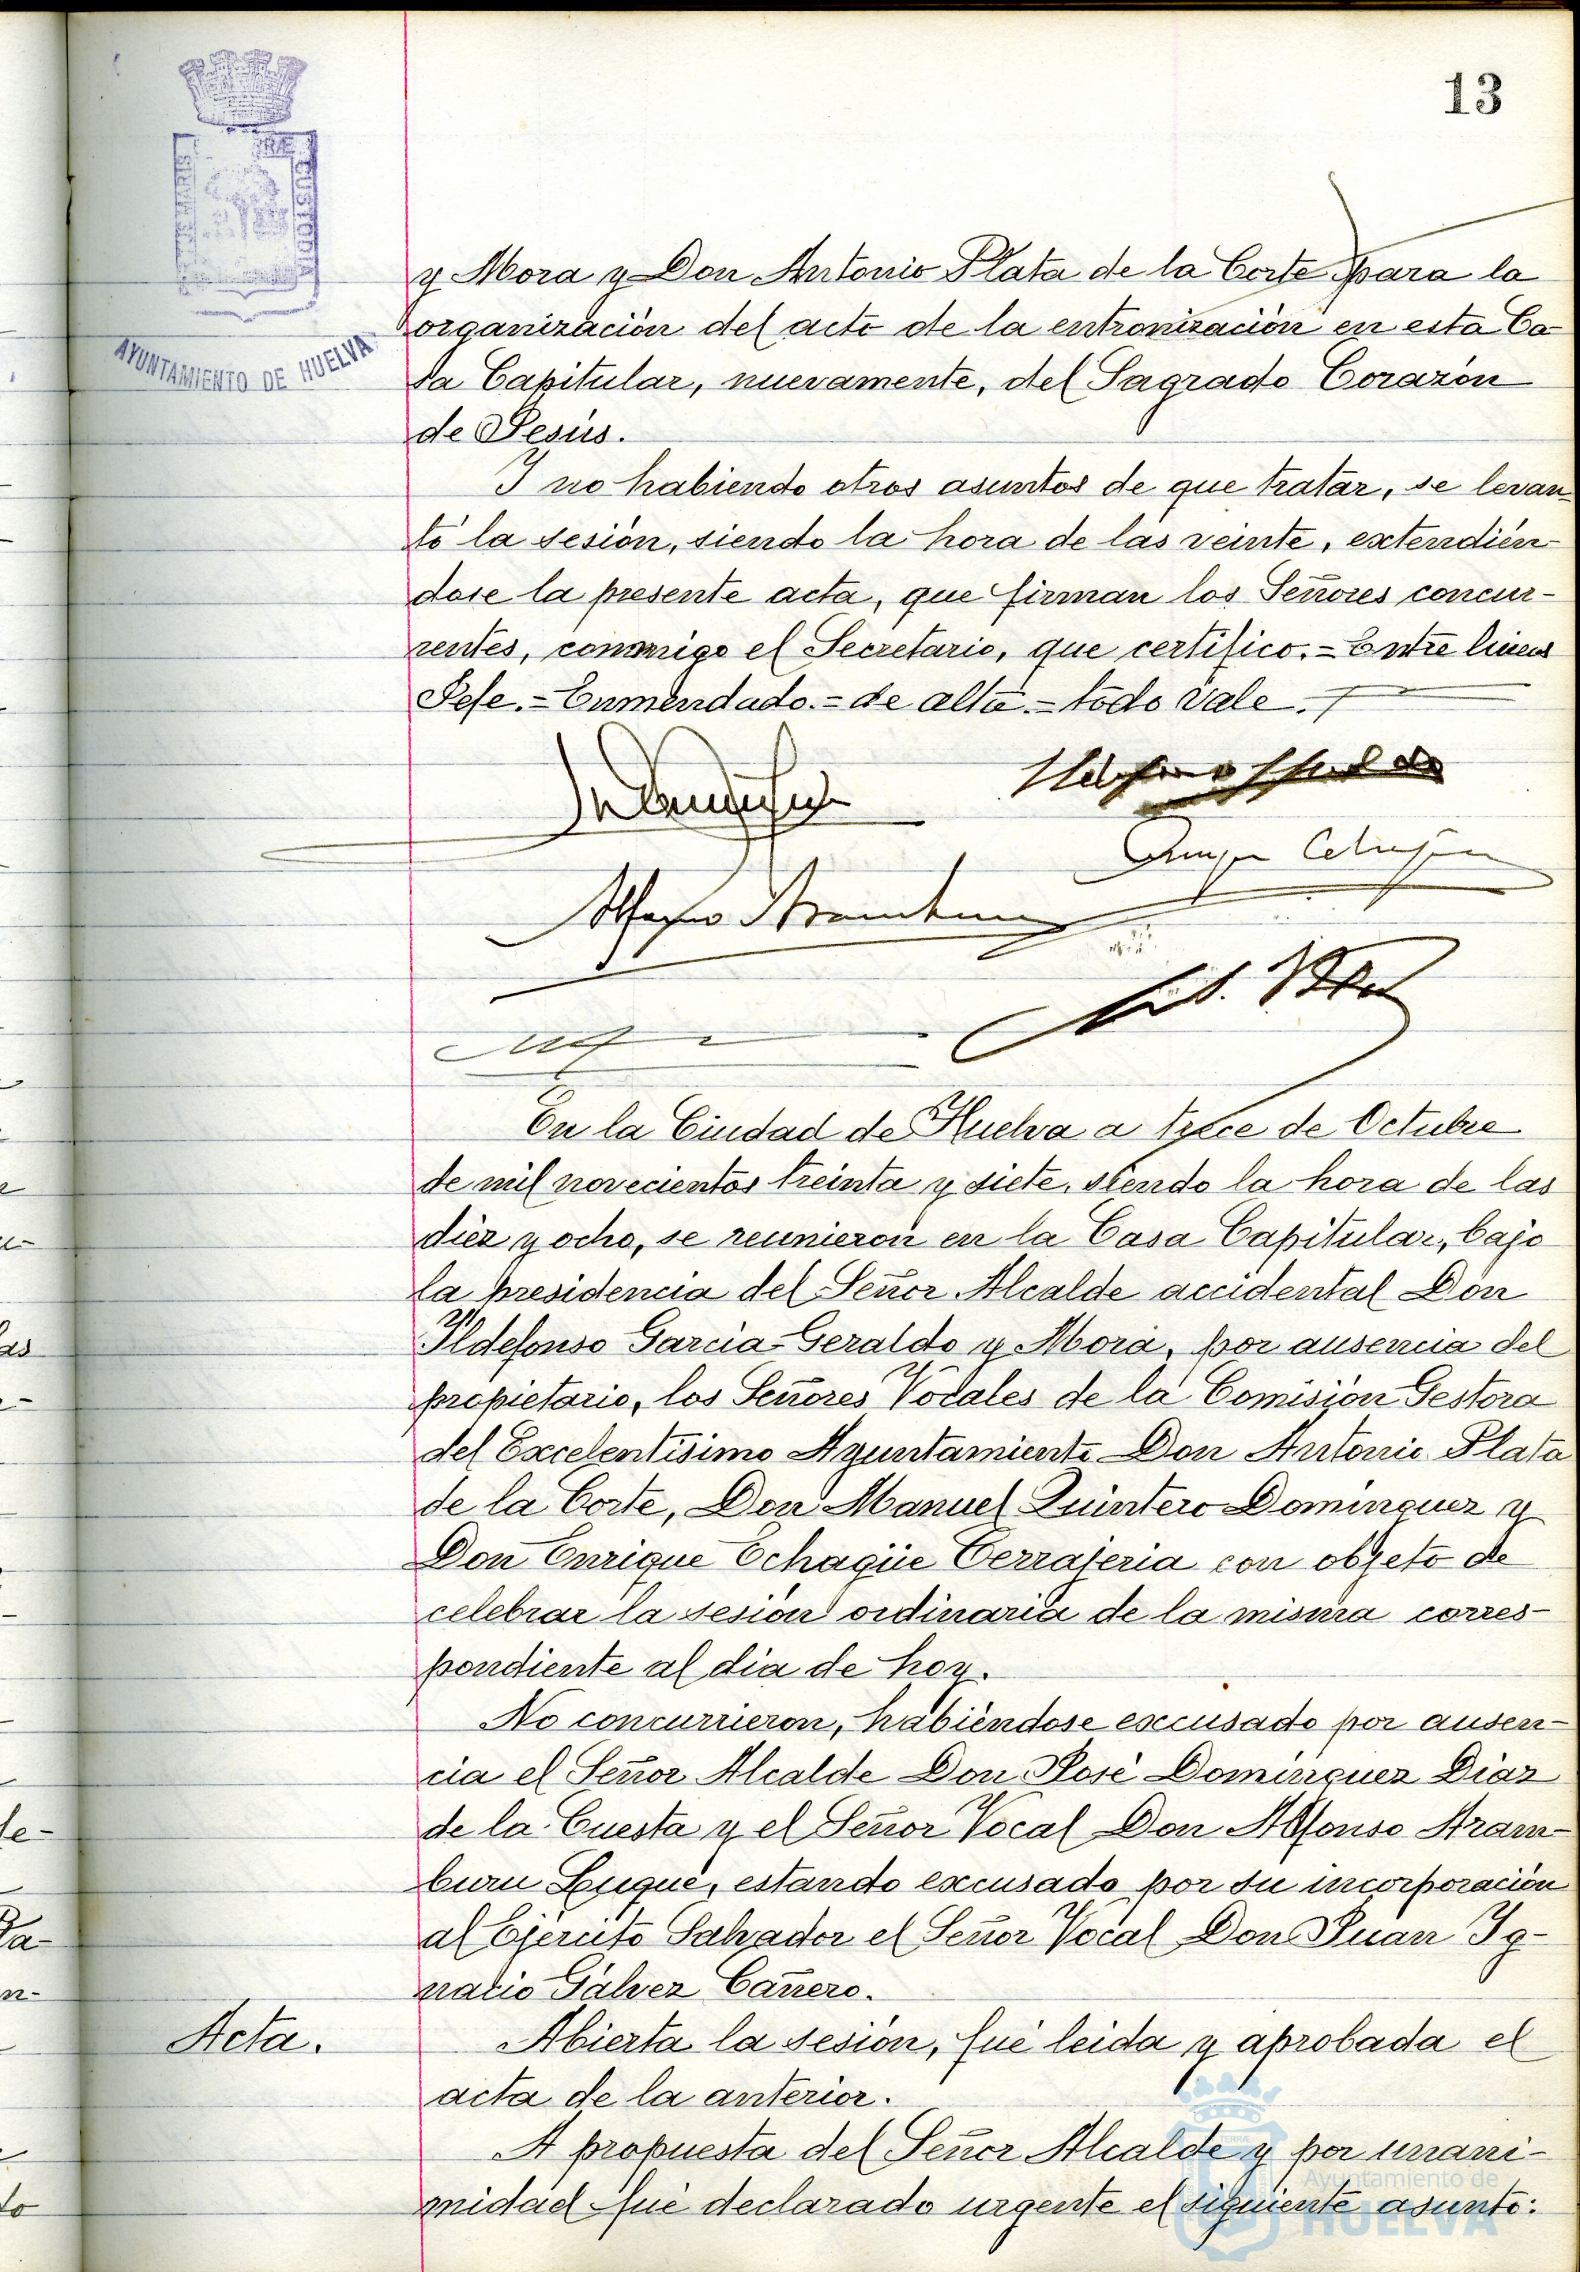 13
AYUNTAMIENTO DE HUELVA
y Mora y Don Antonio Plata de la Corte para la
organización del acto de la entronización en esta Ca-
sa Capitular, nuevamente, del Sagrado Corazón
de Jesús.
Y no habiendo otros asuntos de que tratar, se levan-
tó la sesión, siendo la hora de las veinte, extendién-
dose la presente acta, que firman los Señores concur-
rentes, conmigo el Secretario, que certifico.=Entre lineas
Jefe.=Enmendado.=de alta.=todo vale.
En la Ciudad de Huelva a trece de Octubre
de mil novecientos treinta y siete, siendo la hora de las
diez y ocho, se reunieron en la Casa Capitular, bajo
la presidencia del Señor Alcalde accidental Don
Ildefonso Garcia-Geraldo y Mora, por ausencia del
propietario, los Señores Vocales de la Comisión Gestora
del Excelentisimo Ayuntamiento Don Antonio Plata
de la Corte, Don Manuel Quintero Dominguez y
Don Enrique Echagüe Cerrajeria con objeto de
celebrar la sesión ordinaria de la misma corres-
pondiente al dia de hoy.
No concurrieron, habiéndose excusado por ausen-
cia el Señor Alcalde Don José Dominguez Diaz
de la Cuesta y el Señor Vocal Don Alfonso Aram-
buru Luque, estando excusado por su incorporación
al Ejército Salvador el Señor Vocal Don Juan Ig-
nacio Gálvez Cañero.
Acta.
Abierta la sesión, fué leida y aprobada el
acta de la anterior.
A propuesta del Señor Alcalde y por unani-
midad fué declarado urgente el siguiente asunto:
Ayuntamiento de
HUELVA